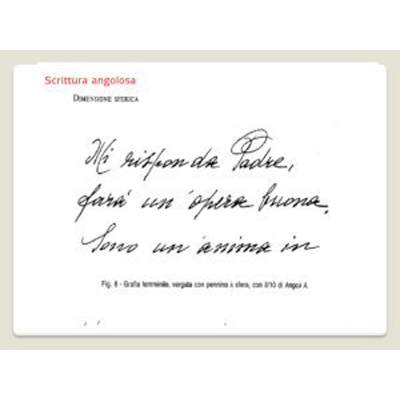 Scrittura angolosa
DIMENSIONE SFERICA
Mi risponda Padre,
farà un'opera buona.
Sono un'anima in
Fig. 8 - Grafia femminile, vergata con pennino a sfera, con 8/10 di Angoli A.